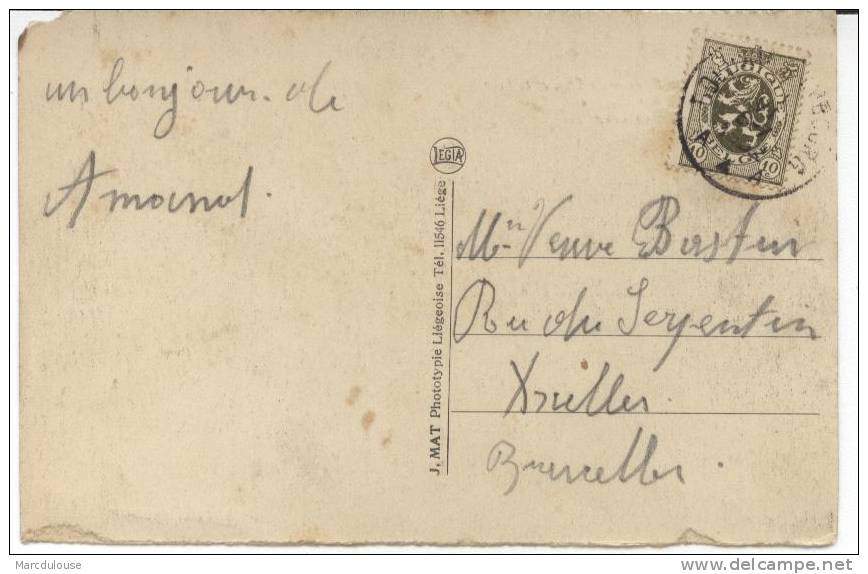 un bonjour de
Amand.
LEGIA
J. MAT Phototypie Liégeoise Tél. 11546 Liége
BELGIQUE
BELGIE
10 10
Veuve Bastin
Rue du Serpentin
Ixelles
Bruxelles.
Marcdulouse
delcampe.net